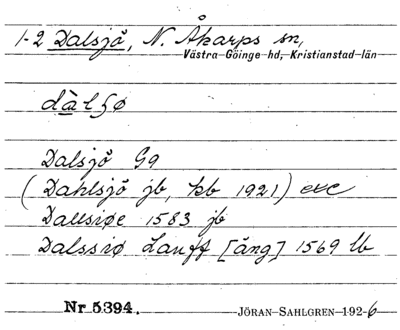 1-2 Dalsjö, N. Åkarps sn,
Västra Göinge hd, Kristianstad län
dàlʃø
Dalsjö G9
(Dahlsjö jb, kb 1921) etc
Dallsiøe 1583 jb
Dalssiø Lauff [äng] 1569 lb
Nr 5394. JÖRAN SAHLGREN 192-6